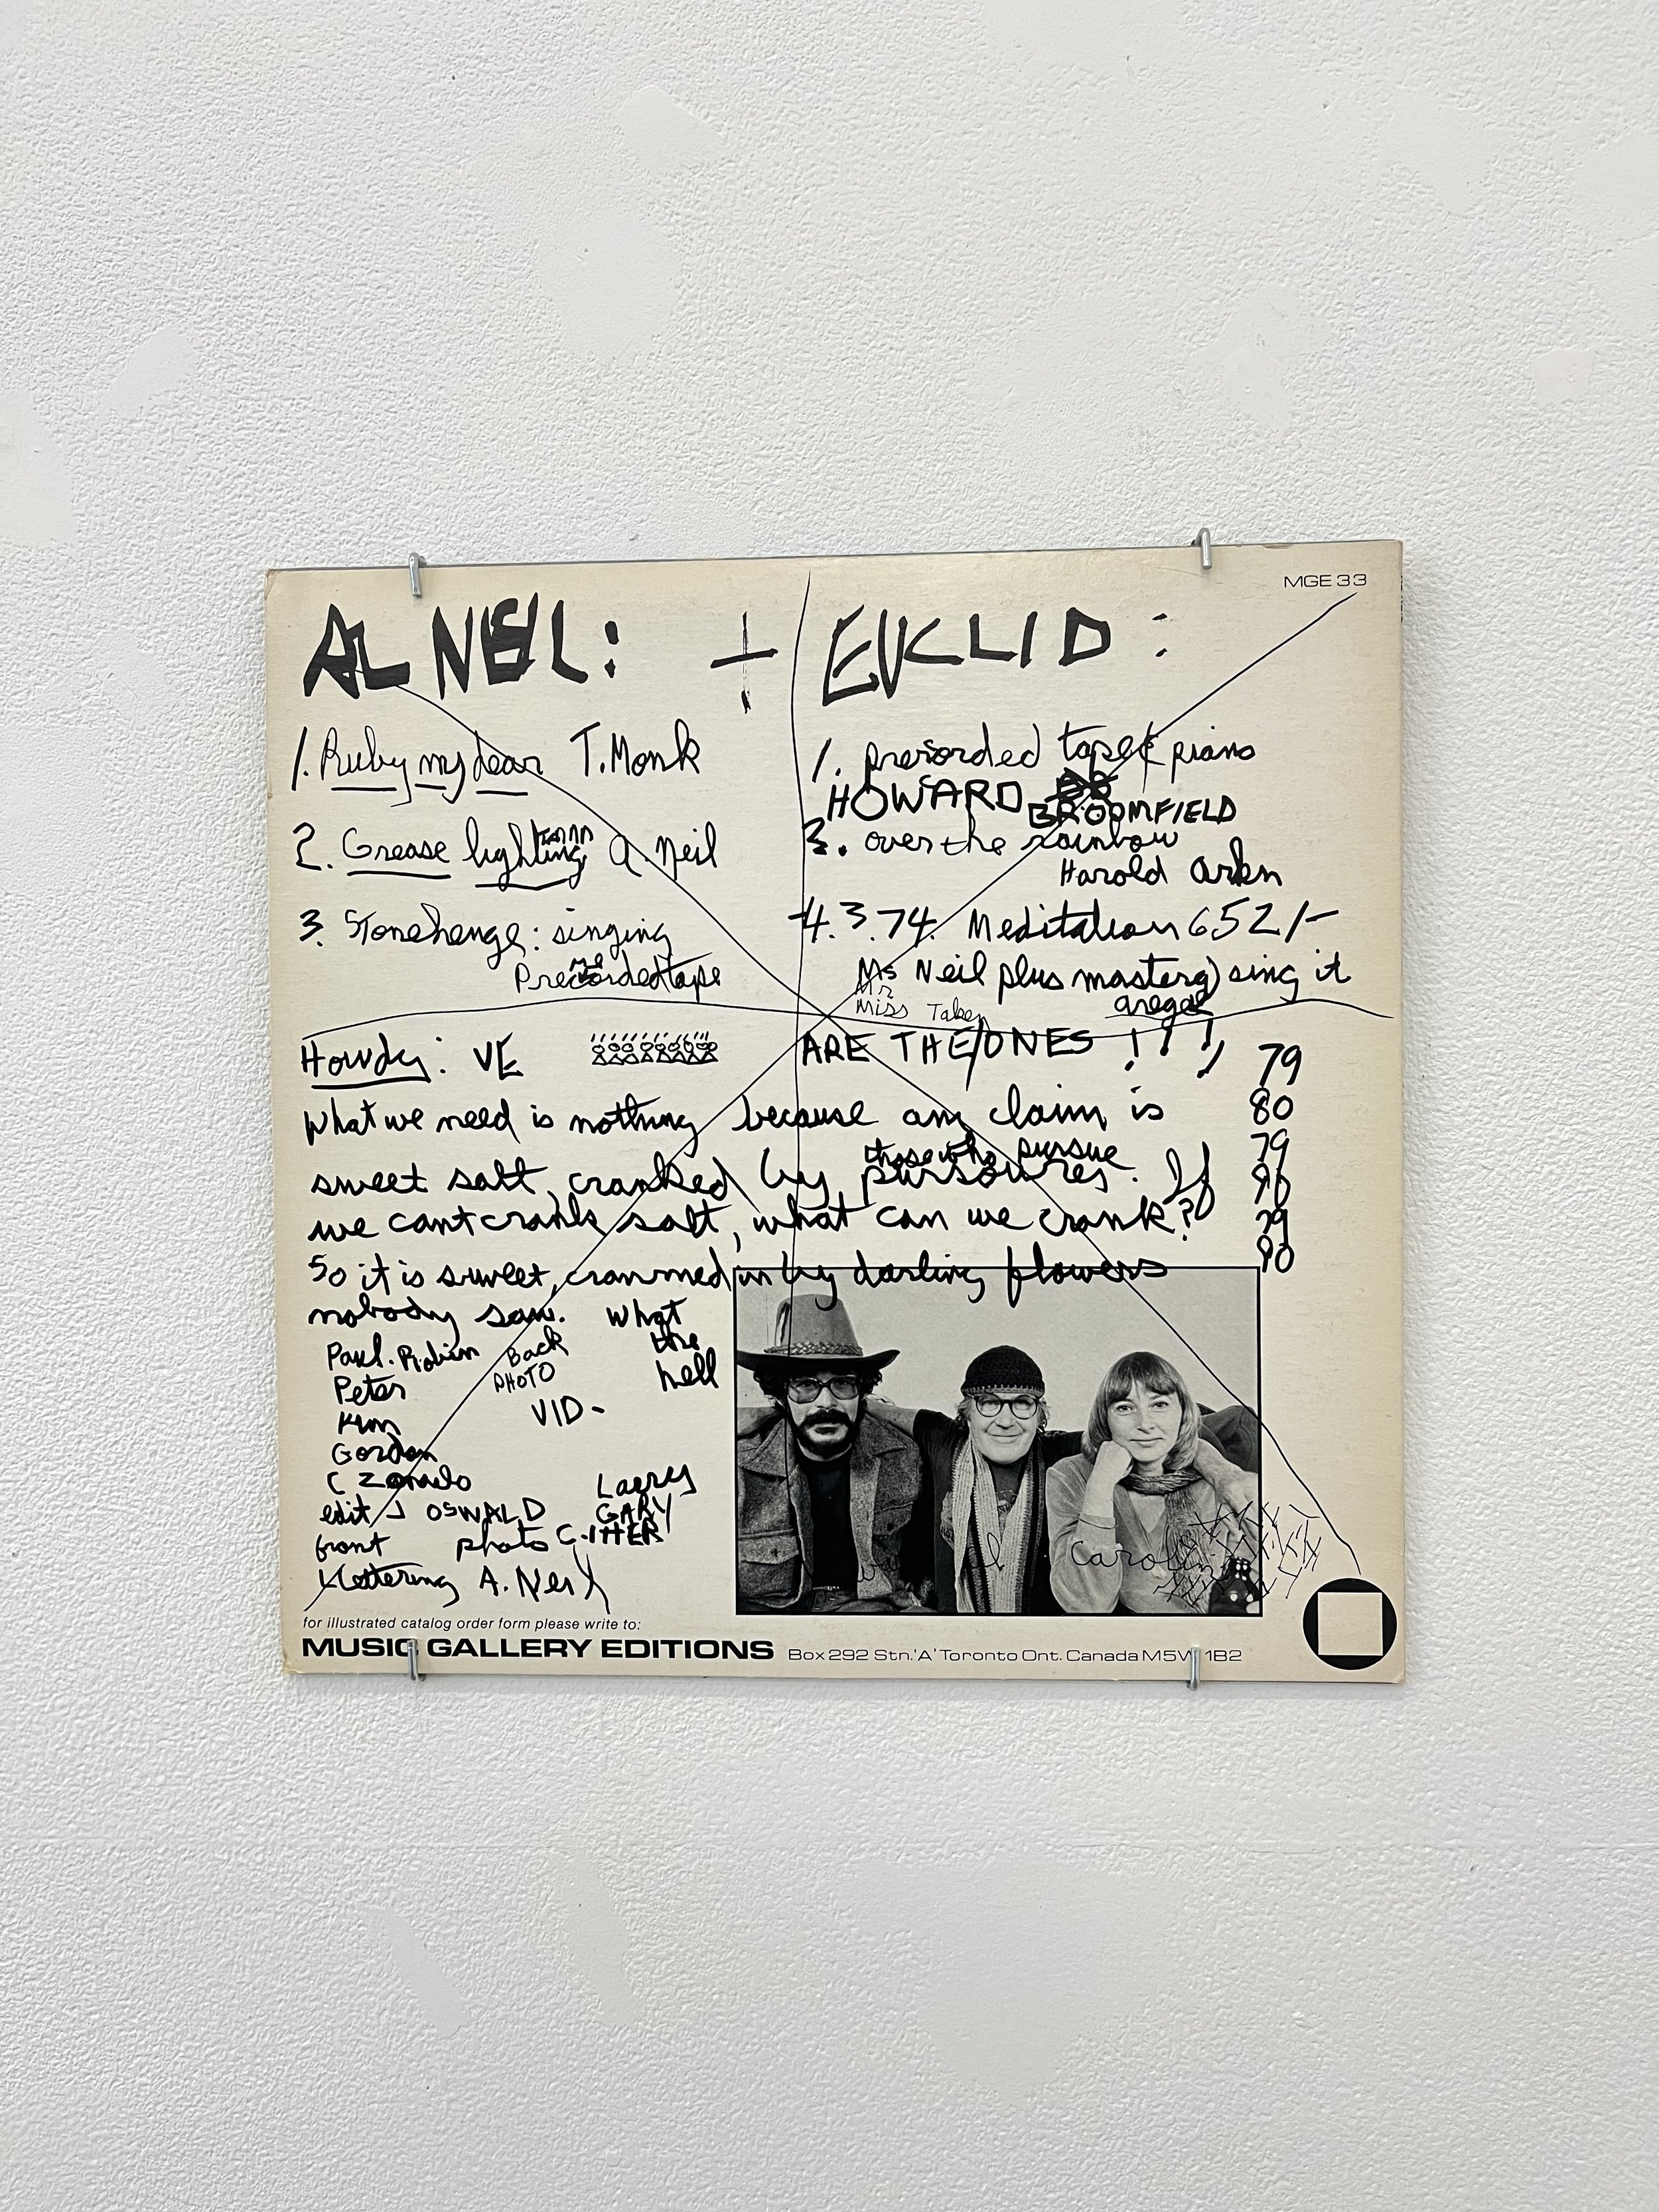 MGE 33
AL NEIL: + EUCLID:
1. Ruby my dear T. Monk
2. Grease lighting A. Neil
3. Stonehenge: singing
Prerecorded tape
1. prerecorded tape & piano
HOWARD BROOMFIELD
3. over the rainbow
Harold Arlen
4.3.74. Meditation 652/-
Ms Neil plus masterg) sing it
Mr
Miss Taken
aregal
Howdy: VE ARE THE/ONES !!!
What we need is nothing because any claim is
those who pursue
sweet salt, cranked by pursoures. If
we cant crank salt, what can we crank?
So it is sweet, crammed in by darling flowers
nobody saw. What
the
hell
79
80
79
90
79
90
Paul. Robin
Peter
Kim
Gordon
C Zonado
edit J OSWALD
front photo C. ITTER
lettering A. Neil
Back
PHOTO
VID-
Larry
GARY
al Carol
for illustrated catalog order form please write to:
MUSIC GALLERY EDITIONS Box 292 Stn. 'A' Toronto Ont. Canada M5W 1B2